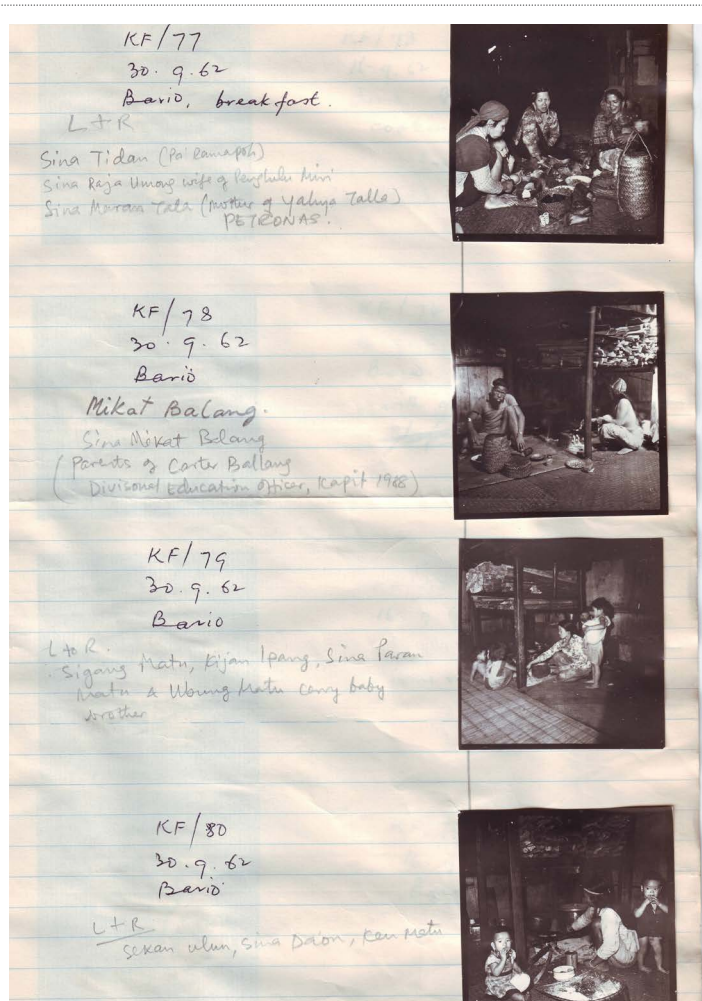 KF/77
30.9.62
Bario, breakfast.
L + R
Sina Tidan (Pa' Ramapoh)
Sina Raja Umong wife of Penghulu Miri
Sina Maran Tala (mother of Yahya Talla)
PETRONAS.
KF/78
30.9.62
Bario
Mikat Balang.
Sina Mikat Balang
(Parents of Carter Ballang
Divisonal Education Officer, Kapit 1988)
KF/79
30.9.62
Bario
L to R.
Sigang Matu, Kijan Ipang, Sina Paran
Matu & Ubung Matu carry baby
brother
KF/80
30.9.62
Bario
L + R
Sekan ulun, Sina Da'on, Matu